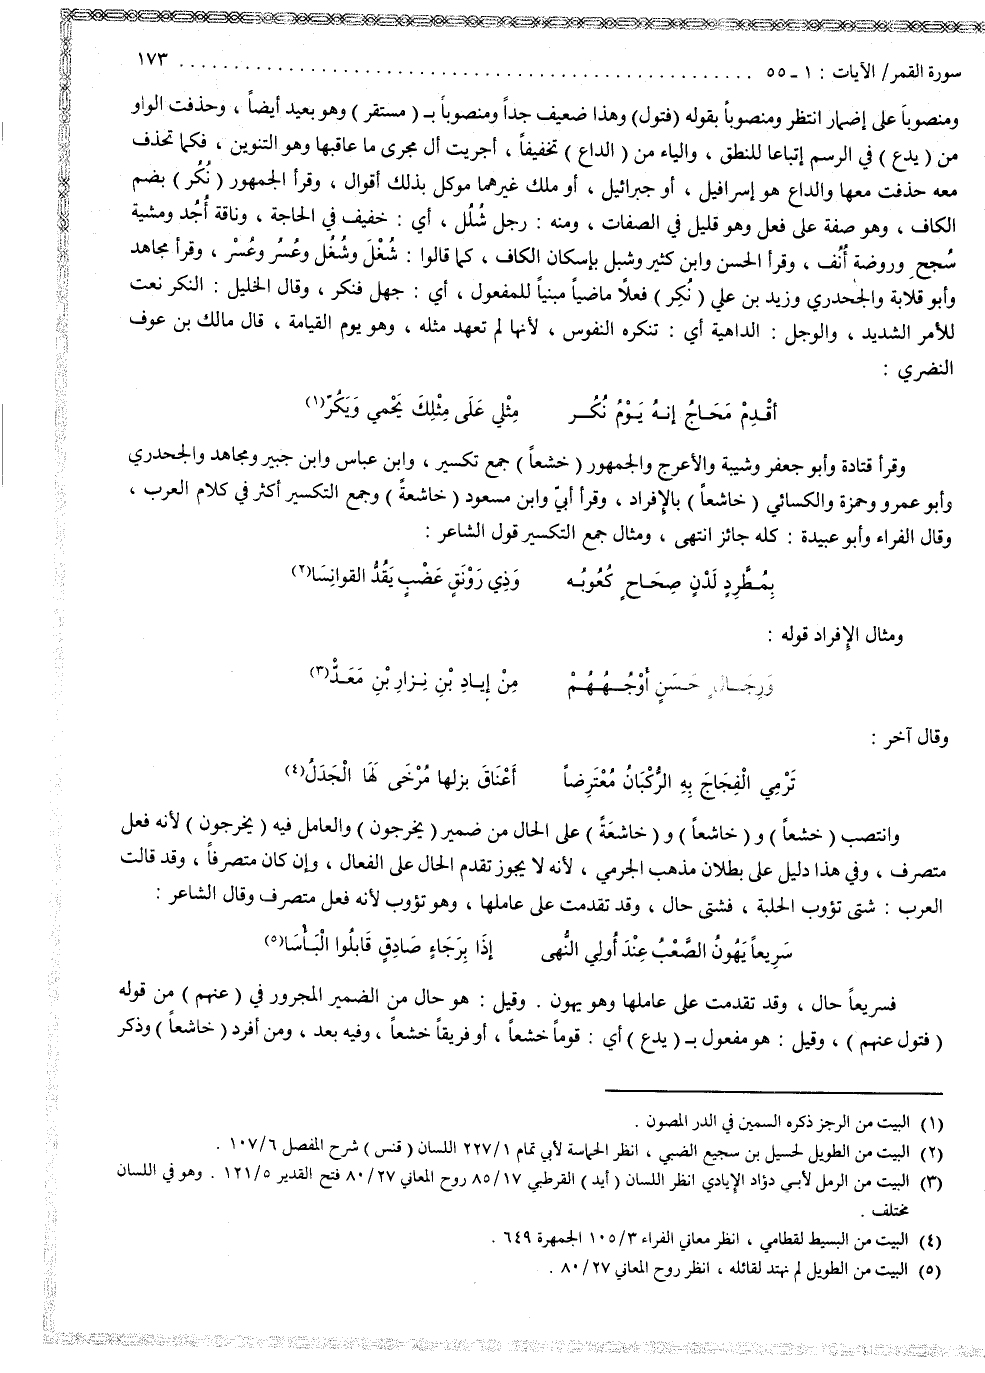 سورة القمر/ الآيات : ١ ـ ٥٥ ........................................................ ١٧٣
ومنصوباً على إضمار انتظر ومنصوباً بقوله (فتول) وهذا ضعيف جداً ومنصوباً بـ ( مستقر ) وهو بعيد أيضاً ، وحذفت الواو
من ( يدع ) في الرسم إتباعا للنطق ، والياء من ( الداع ) تخفيفاً ، أجريت أل مجرى ما عاقبها وهو التنوين ، فكما تحذف
معه حذفت معها والداع هو إسرافيل ، أو جبرائيل ، أو ملك غيرهما موكل بذلك أقوال ، وقرأ الجمهور ( نُكُر ) بضم
الكاف ، وهو صفة على فعل وهو قليل في الصفات ، ومنه : رجل شُلُل ، أي : خفيف في الحاجة ، وناقة أُجُد ومشية
سُجح وروضة أُنُف ، وقرأ الحسن وابن كثير وشبل بإسكان الكاف ، كما قالوا : شُغْل وشُغُل وعُسُر وعُسْر ، وقرأ مجاهد
وأبو قلابة والجحدري وزيد بن علي ( نُكِر ) فعلاً ماضياً مبنياً للمفعول ، أي : جهل فنكر ، وقال الخليل : النكر نعت
للأمر الشديد ، والوجل : الداهية أي : تنكره النفوس ، لأنها لم تعهد مثله ، وهو يوم القيامة ، قال مالك بن عوف
النضري :
أقْدِمْ مَحَاجُ إنهُ يَوْمُ نُكُر مِثْلِي عَلَى مِثْلِكَ يَحْمي وَيَكُرّ(١)
وقرأ قتادة وأبو جعفر وشيبة والأعرج والجمهور ( خشعاً ) جمع تكسير ، وابن عباس وابن جبير ومجاهد والجحدري
وأبو عمرو وحمزة والكسائي ( خاشعاً ) بالإفراد ، وقرأ أبيّ وابن مسعود ( خاشعةً ) وجمع التكسير أكثر في كلام العرب ،
وقال الفراء وأبو عبيدة : كله جائز انتهى ، ومثال جمع التكسير قول الشاعر :
بِمُطَّرِدٍ لَدْنٍ صِحَاحٍ كُعُوبُه وَذِي رَوْنَقٍ عَضْبٍ يَقُدُّ القوانِسَا(٢)
ومثال الإفراد قوله :
وَرِجَالٍ حَسَنٍ أوْجُهُهُمْ مِنْ إيادِ بْنِ نِزارِ بْنِ مَعَدّْ(٣)
وقال آخر :
تَرْمِي الْفِجَاجَ بِهِ الرُّكْبَانُ مُعْتَرِضاً أَعْنَاقَ بزلها مُرْخَى لَهَا الْجَدَلُ(٤)
وانتصب ( خشعاً ) و ( خاشعاً ) و ( خاشعَةً ) على الحال من ضمير ( يخرجون ) والعامل فيه ( يخرجون ) لأنه فعل
متصرف ، وفي هذا دليل على بطلان مذهب الجرمي ، لأنه لا يجوز تقدم الحال على الفعال ، وإن كان متصرفاً ، وقد قالت
العرب : شتى تؤوب الحلبة ، فشتى حال ، وقد تقدمت على عاملها ، وهو تؤوب لأنه فعل متصرف وقال الشاعر :
سَرِيعاً يَهُونُ الصَّعْبُ عِنْدَ أُولِي النُّهى إذَا بِرَجَاءٍ صَادِقٍ قَابلُوا الْبَأْسَا(٥)
فسريعاً حال ، وقد تقدمت على عاملها وهو يهون . وقيل : هو حال من الضمير المجرور في ( عنهم ) من قوله
( فتول عنهم ) ، وقيل : هو مفعول بـ ( يدع ) أي : قوماً خشعاً ، أو فريقاً خشعاً ، وفيه بعد ، ومن أفرد ( خاشعاً ) وذكر
(١) البيت من الرجز ذكره السمين في الدر المصون .
(٢) البيت من الطويل لحسيل بن سجيع الضبي ، انظر الحماسة لأبي تمام ٢٢٧/١ اللسان ( قنس ) شرح المفصل ١٠٧/٦ .
(٣) البيت من الرمل لأبي دؤاد الإيادي انظر اللسان ( أيد ) القرطبي ٨٥/١٧ روح المعاني ٨٠/٢٧ فتح القدير ١٢١/٥ . وهو في اللسان
مختلف .
(٤) البيت من البسيط لقطامي ، انظر معاني الفراء ١٠٥/٣ الجمهرة ٦٤٩ .
(٥) البيت من الطويل لم نهتد لقائله ، انظر روح المعاني ٨٠/٢٧ .